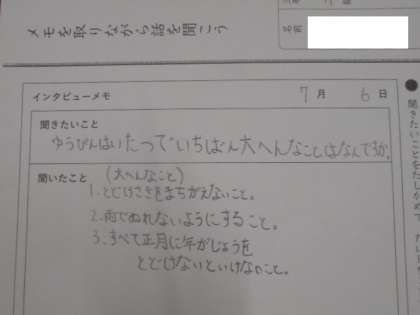 メモを取りながら話を聞こう
名前
インタビューメモ
7月 6日
聞きたいこと
ゆうびんはいたつでいちばん大へんなことはなんですか。
聞いたこと
(大へんなこと)
1.とどけさきをまちがえないこと。
2.雨でぬれないようにすること。
3.すべて正月に年がじょうを
とどけないといけないこと。
● 聞きたいことをたしかめ